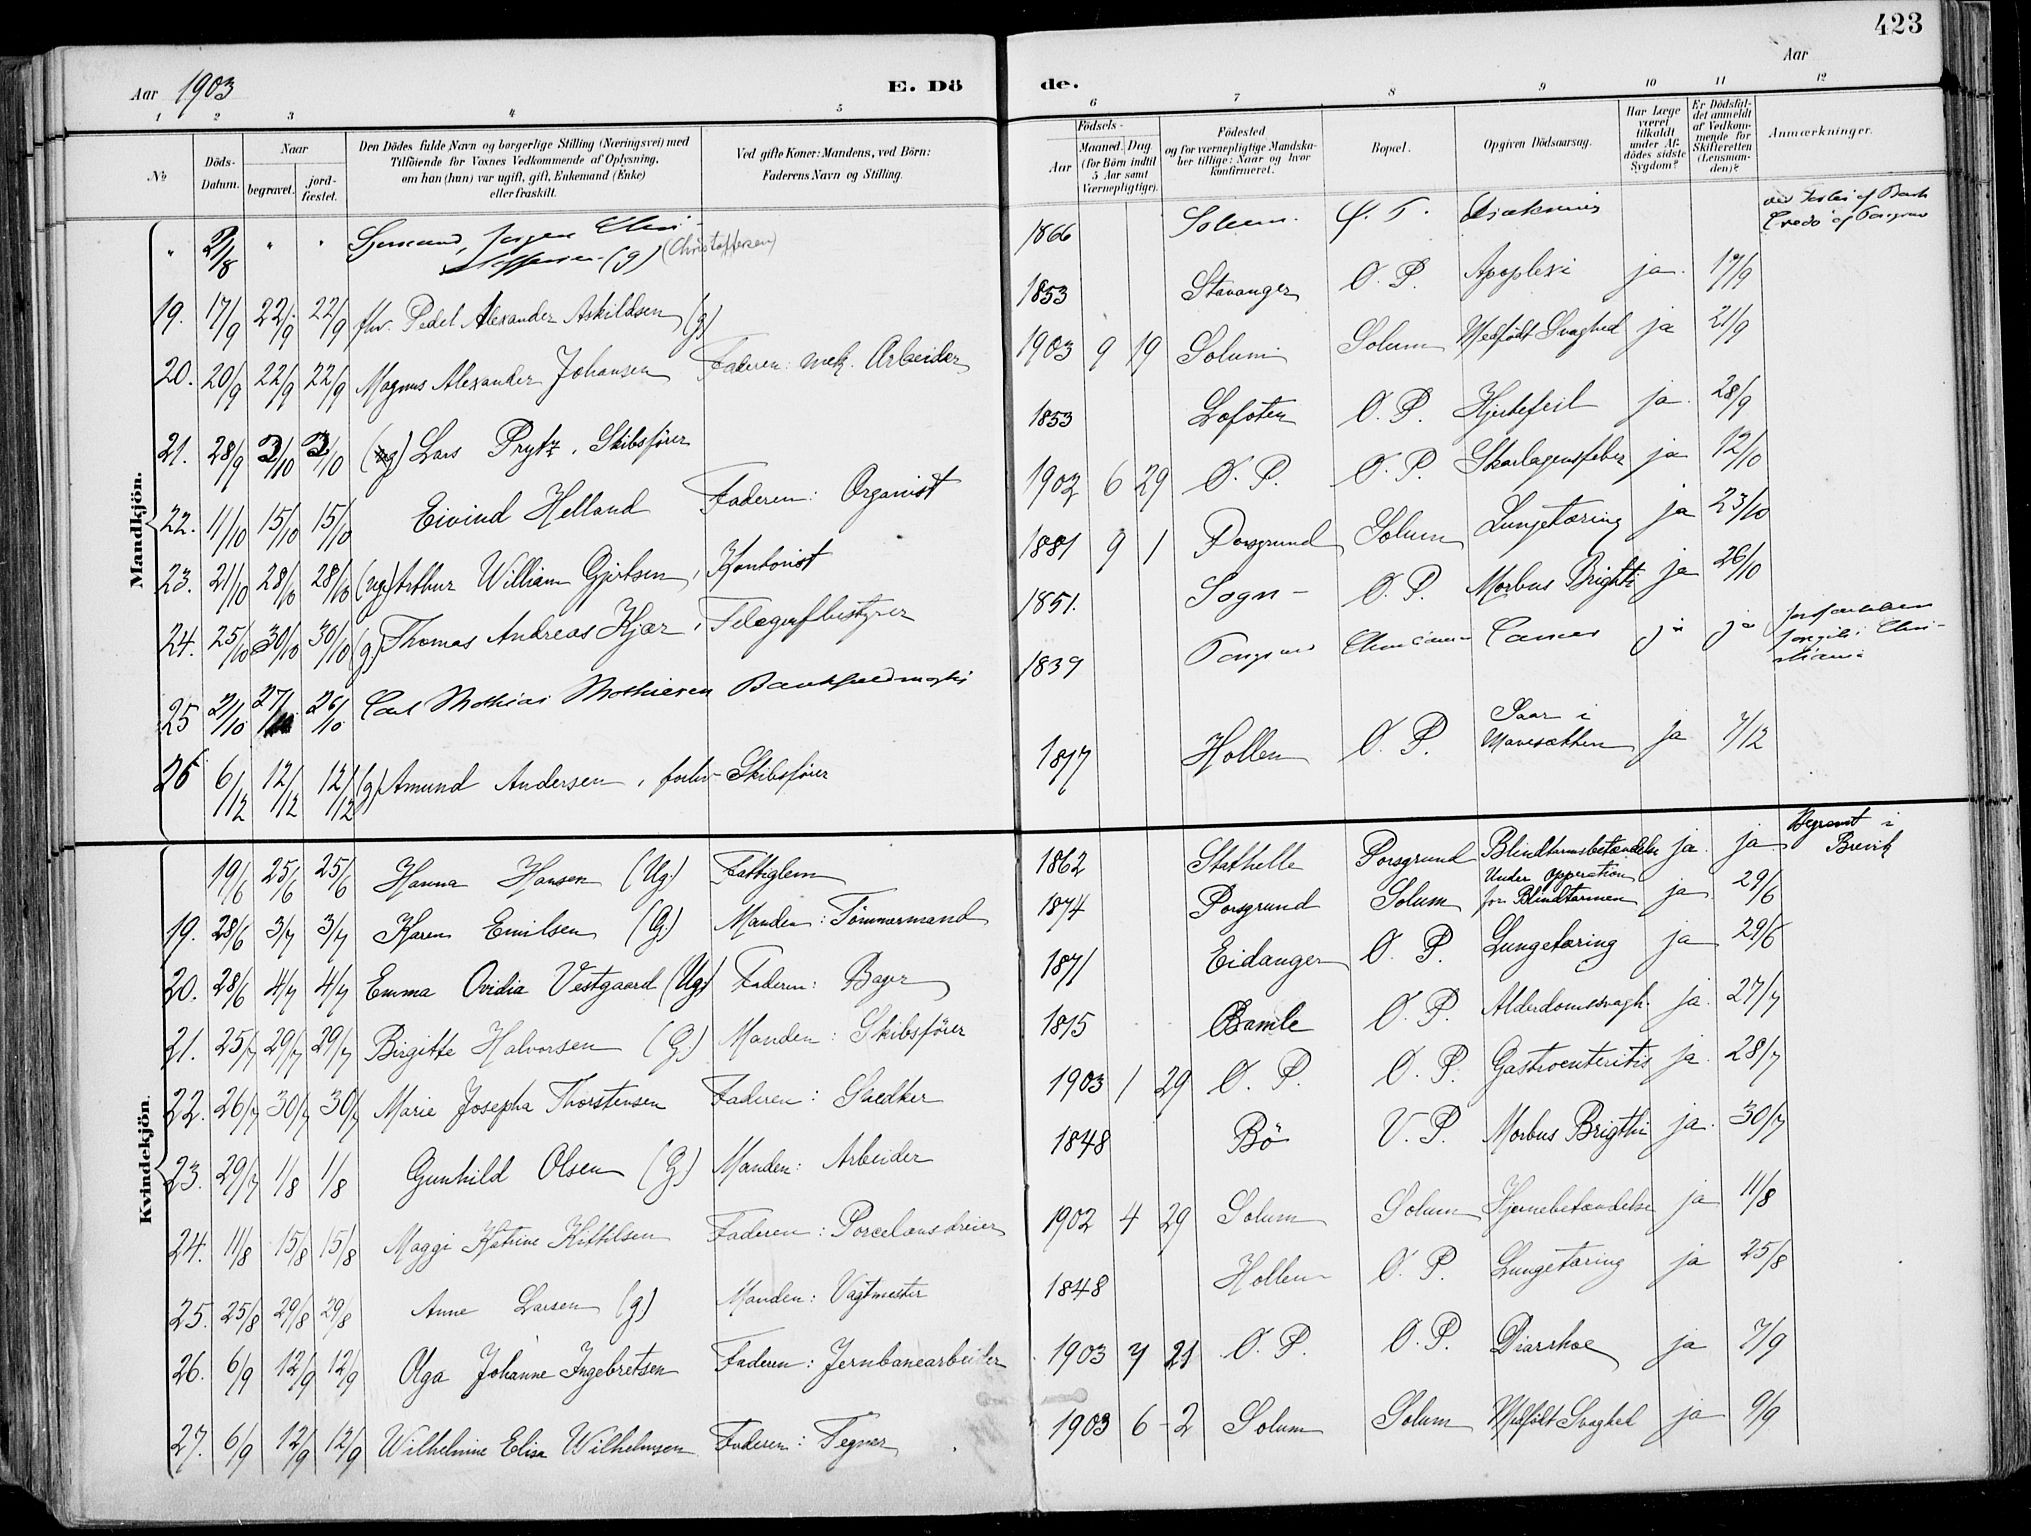 423
Aar 1903
E. Dö
de.
Aar
1 2 3 4 5 6 7 8 9 10 11 12
No
Döds-Datum.
Naar
begravet.
jord-fæstet.
Den Dödes fulde Navn og borgerlige Stilling (Næringsvei) med
Tilföiende for Voxnes Vedkommende af Oplysning,
om han (hun) var ugift, gift, Enkemand (Enke)
eller fraskilt.
Ved gifte Koner: Mandens, ved Börn:
Faderens Navn og Stilling.
Födsels-
Aar
Maaned. Dag
(for Börn indtil
5 Aar samt
Værnepligtige).
Födested
og for værnepligtige Mandska-
ber tillige: Naar og hvor
konfirmeret.
Bopæl.
Opgiven Dödsaarsag.
Har Læge
været
tilkaldt
under Af-
dödes sidste
Sygdom?
Er Dödsfal-
det anmeldt
af Vedkom-
mende for
Skifteretten
(Lensman-
den)?
Anmærkninger.
Mandkjön.
" 2/8 " " Jørgen (g) (Christoffersen) 1866 Solum
19. 17/9 22/9 22/9 fhv. Pedel Alexander Askildsen (g) 1853 Stavanger Ø. P. Apoplexi ja. 17/9
20. 20/9 22/9 22/9 Magnus Alexander Johansen Faderen: mek. Arbeider 1903 9 19 Solum Solum Medfödt Svaghed ja 21/9
21. 28/9 3/10 3/10 (ug) Lars Prytz, Skibsfører 1853 Lofoten Ø. P. Hjertefeil ja. 28/9
22. 11/10 15/10 15/10 Eivind Helland Faderen: Organist 1902 6 29 Ø. P. Ø. P. Skarlagensfeber ja 12/10
23. 21/10 28/10 28/10 (ug) Arthur William Gjertsen, Kontorist 1881 9 1 Porsgrund Solum Lungetæring ja 23/10
24. 25/10 30/10 30/10 (g) Thomas Andreas Kjær, Telegrafbestyrer 1851. Sogn - Ø. P. Morbus Brighti ja 26/10
25 21/10 27/10 26/10 Carl Mathias Mathiesen 1839 Cancer ja ja
26 6/12 12/12 12/12 (g) Amund Andersen, forhv. Skibsfører 1817 Hollen Ø. P. Saar i
Mavesækken ja 7/12
Kvindekjön.
19/6 25/6 25/6 Hanna Hansen (Ug.) Fattiglem 1862 Stathelle Porsgrund Blindtarmsbetændelse ja ja Begravet i
Brevik
19. 28/6 3/7 3/7 Karen Emilsen (G.) Manden: Tömmermand 1874 Porsgrund Solum Under Opperation
for Blindtarmen ja. 29/6
20. 28/6 4/7 4/7 Emma Ovidia Vestgaard (Ug.) Faderen: Bager 1871 Eidanger Ø. P. Lungetæring ja 29/6
21. 25/7 29/7 29/7 Birgitte Halvorsen (G.) Manden: Skibsfører 1815 Bamle Ø. P. Alderdomssvagh. ja. 27/7
22. 26/7 30/7 30/7 Marie Josepha Thorstensen Faderen: Snedker 1903 1 29 Ø. P. Ø. P. Gastroenteritis ja. 28/7
23. 29/7 1/8 1/8 Gunhild Olsen (G.) Manden: Arbeider 1848 Bö V. P. Morbus Brigthi ja. 30/7
24. 11/8 15/8 15/8 Maggi Katrine Kittilsen Faderen: Porcelænsdreier 1902 4 29 Solum Solum Hjernebetændelse ja 11/8
25. 25/8 29/8 29/8 Anne Larsen (g.) Manden: Vagtmester 1848 Hollen Ø. P. Lungetæring ja 25/8
26. 6/9 12/9 12/9 Olga Johanne Ingebretsen Faderen: Jernbanearbeider 1903 7 21 Ø. P. Ø. P. Diarrhoe ja 7/9
27. 6/9 12/9 12/9 Wilhelmine Elise Wilhelmsen Faderen: Tegner 1903 6 - 2 Solum Solum Medfödt Svaghed ja 9/9